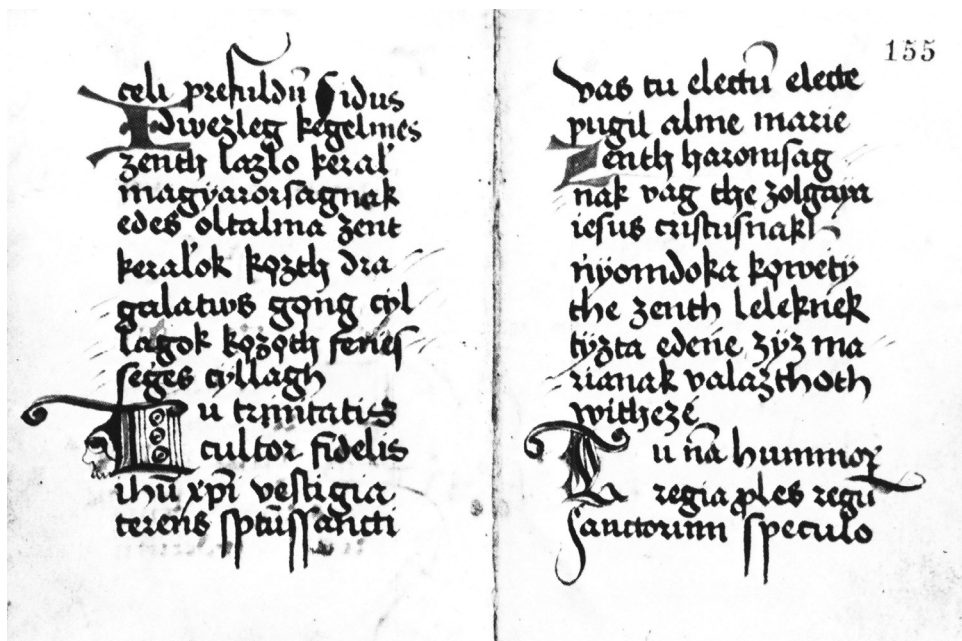 celi prefuldū sidus
Idwezleg kegelmes
zenth lazlo keral'
magyarorsagnak
edes oltalma zent
keral'ok kǫzth dra
galatws gǫng cyl
lagok kǫzǫth feńes
seges cyllagh
Tu trinitatis
cultor fidelis
ihū xpī vestigia
terens sptūssancti
155
vas tu electū electe
pugil alme marie
Zenth haromsag
nak vag the zolgaya
iesus cristusnak
ńyomdoka kǫwetÿ
the zenth leleknek
tÿzta edeńe zÿz ma
rianak valazthoth
witheze
Tu nā hunnioꝝ
regia ꝓles regū
sanctorum speculo